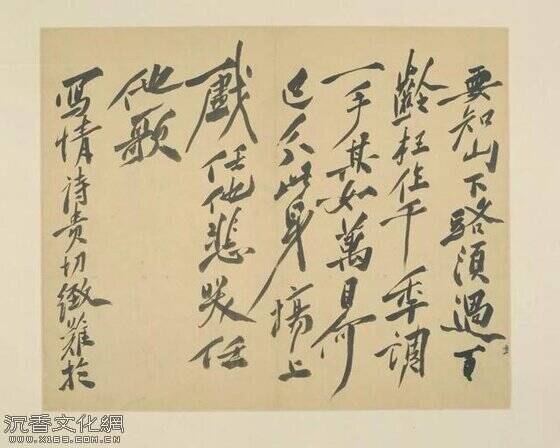 要知山下路須過百
齡枉作千年調
一手其如萬目何
已分此身場上
戲任他悲哭任
他歌
写情詩貴切緻難於
沉香文化網